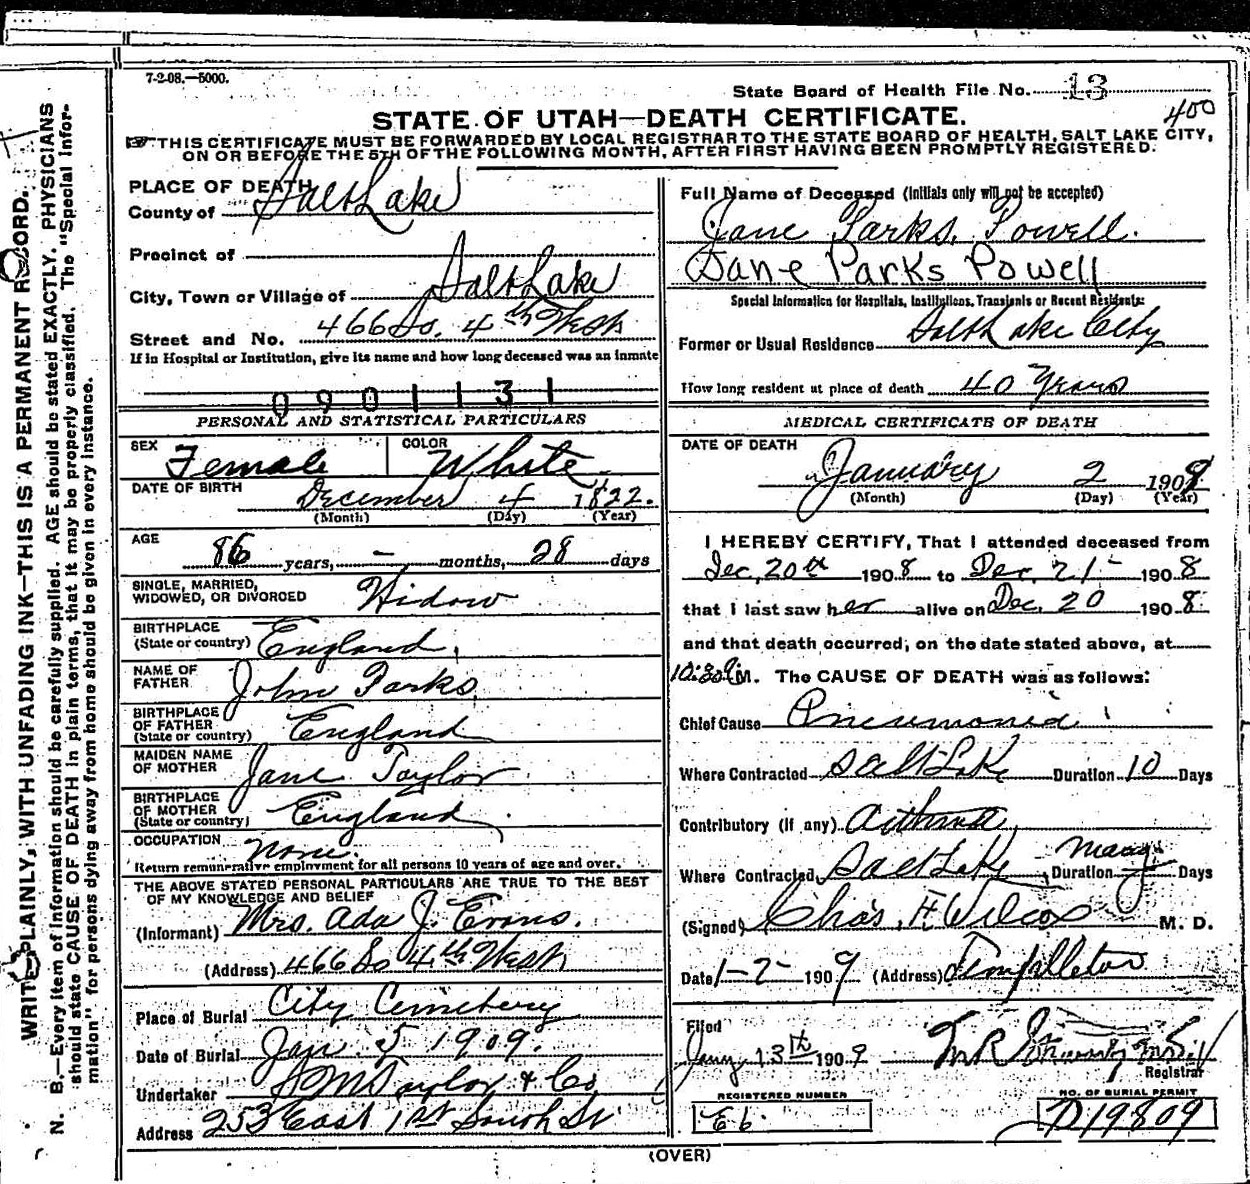 7-2-08.—5000.
State Board of Health File No. 13
400
STATE OF UTAH—DEATH CERTIFICATE.
THIS CERTIFICATE MUST BE FORWARDED BY LOCAL REGISTRAR TO THE STATE BOARD OF HEALTH, SALT LAKE CITY,
ON OR BEFORE THE 5TH OF THE FOLLOWING MONTH, AFTER FIRST HAVING BEEN PROMPTLY REGISTERED.
WRITE PLAINLY, WITH UNFADING INK—THIS IS A PERMANENT RECORD.
N. B.—Every item of information should be carefully supplied. AGE should be stated EXACTLY. PHYSICIANS
should state CAUSE OF DEATH in plain terms, that it may be properly classified. The "Special Infor-
mation" for persons dying away from home should be given in every instance.
PLACE OF DEATH
County of Salt Lake
Precinct of
City, Town or Village of Salt Lake
Street and No. 466 So. 4th West
If in Hospital or Institution, give its name and how long deceased was an inmate
0901131
PERSONAL AND STATISTICAL PARTICULARS
SEX Female COLOR White
DATE OF BIRTH December 4 1822.
(Month) (Day) (Year)
AGE 86 years, — months, 28 days
SINGLE, MARRIED,
WIDOWED, OR DIVORCED Widow
BIRTHPLACE
(State or country) England.
NAME OF
FATHER John Parks
BIRTHPLACE
OF FATHER
(State or country) England
MAIDEN NAME
OF MOTHER Jane Taylor
BIRTHPLACE
OF MOTHER
(State or country) England.
OCCUPATION none.
Return remunerative employment for all persons 10 years of age and over.
THE ABOVE STATED PERSONAL PARTICULARS ARE TRUE TO THE BEST
OF MY KNOWLEDGE AND BELIEF
(Informant) Mrs. Ada J. Evans.
(Address) 466 So 4th West
Place of Burial City Cemetery
Date of Burial Jan. 5 1909.
Undertaker S M Taylor & Co
Address 253 East 1st South St
Full Name of Deceased (Initials only will not be accepted)
Jane Parks Powell.
Jane Parks Powell
Special Information for Hospitals, Institutions, Transients or Recent Residents:
Former or Usual Residence Salt Lake City
How long resident at place of death 40 Years
MEDICAL CERTIFICATE OF DEATH
DATE OF DEATH
January 2 1909
(Month) (Day) (Year)
I HEREBY CERTIFY, That I attended deceased from
Dec, 20th 1908 to Dec. 21- 1908
that I last saw her alive on Dec. 20 1908.
and that death occurred, on the date stated above, at
10:30 M. The CAUSE OF DEATH was as follows:
Chief Cause Pneumonia
Where Contracted Salt Lk Duration 10 Days
Contributory (if any) Asthma
Where Contracted, Salt Lk Duration many Days
(Signed) Chas. F Wilcox M. D.
Date 1-2- 1909 (Address) Templeton
Filed
Jany 13th 1909
Registrar
REGISTERED NUMBER
E 6
NO. OF BURIAL PERMIT
D19809
(OVER)